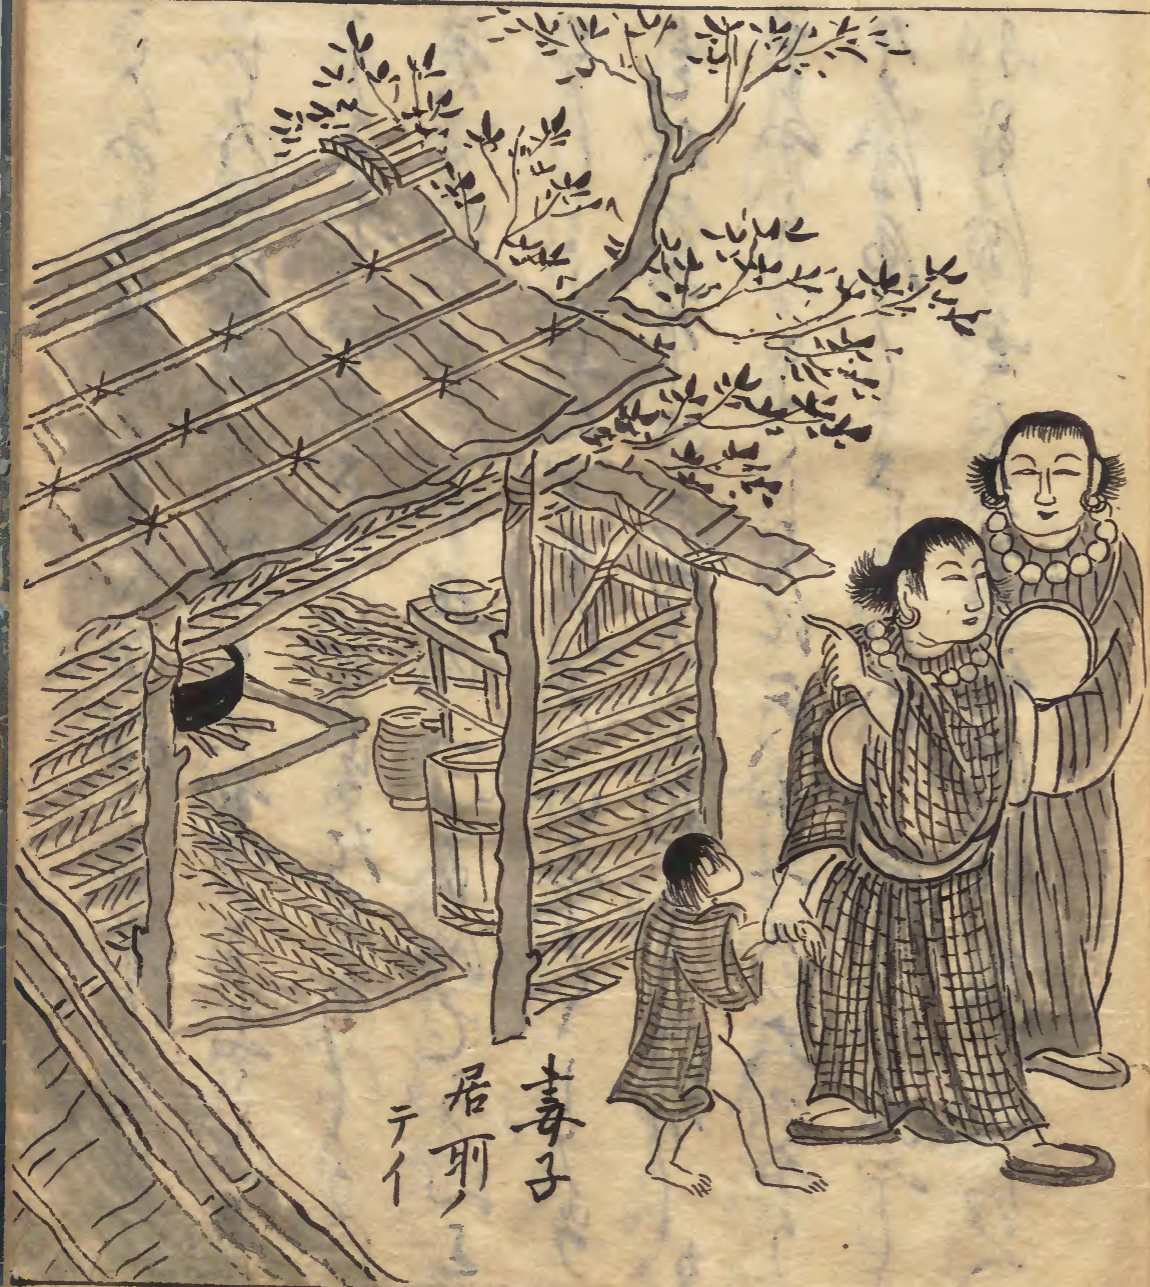 妻子
居所ノ
テイ